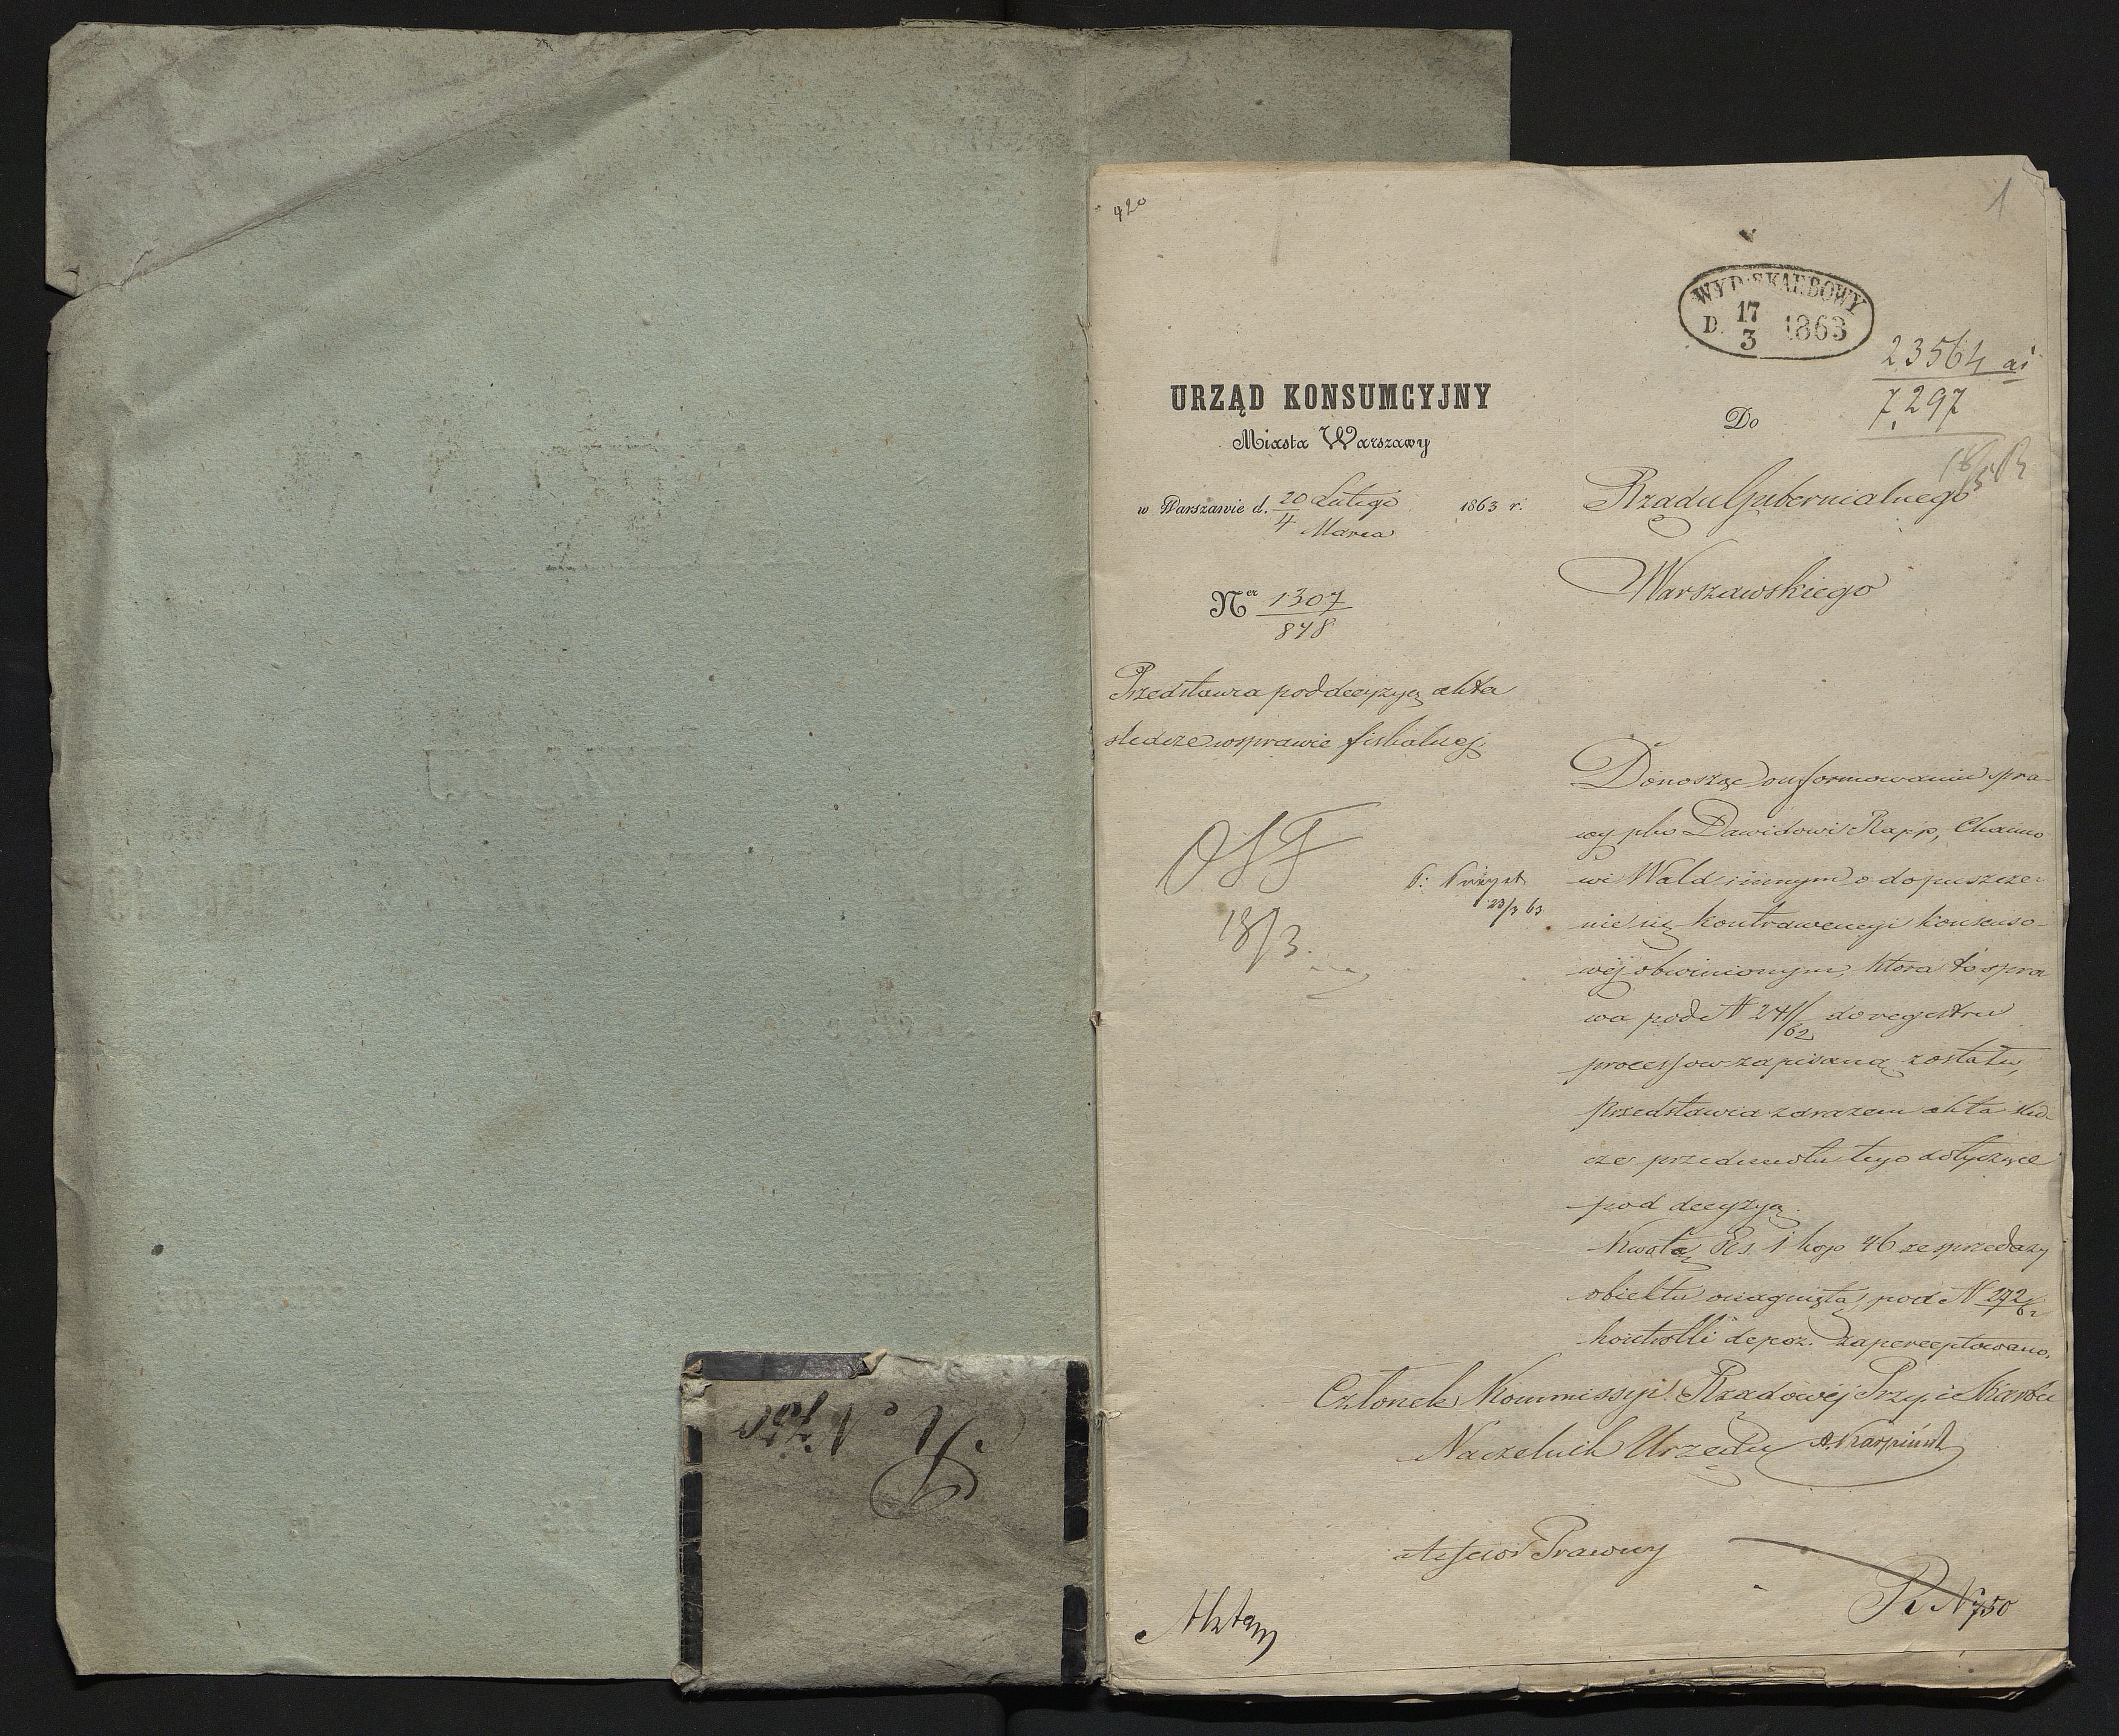 420
1
WYD. SKARBOWY
D. 17/3 1863
23564 ai
7,297
URZĄD KONSUMCYJNY
Miasta Warszawy
w Warszawie d. 20/4 Lutego/Marca 1863 r.
Ner 1307/848
Przedstawia pod decyzyą akta
śledcze w sprawie fiskalnej.
18/3
23/3 63
Do
Rządu Gubernialnego
Warszawskiego
Donosząc o uformowaniu spra-
wy pko Dawidowi Rapp, Chaimo
wi Wald i innym o dopuszcze-
nie się kontrawencyi konsenso-
wéj obwinionym, która to spra
wa pod N 241/62 do regestru
processow zapisaną została,
przedstawia zarazem akta śled-
cze przedmiotu tego dotyczące
pod decyzyą.
Kwotę Rs. 1 kop 46 ze sprzedaży
obiektu osiągniętą pod N 272/62
kontrolli depoz. zaperceptowano.
Członek Kommissyi Rządowéj Przy. i Skarbu
Naczelnik Urzędu A. Karpiński
Assesor Prawny
R N 750
R N 750